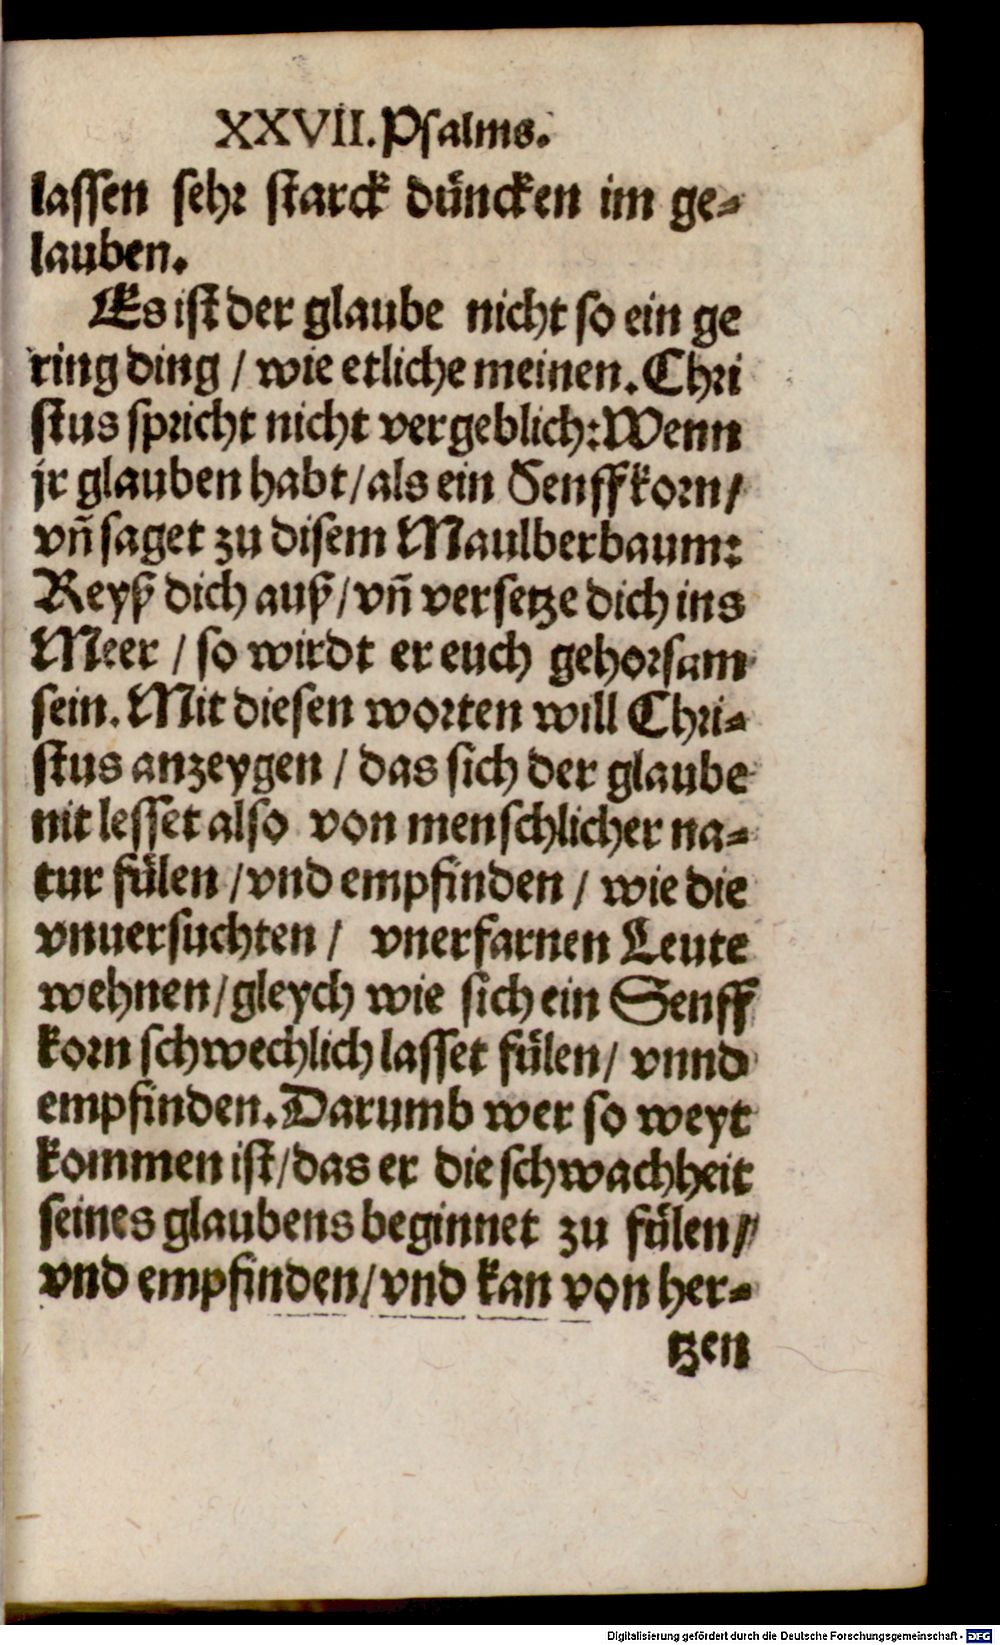 XXVII. Psalms.
lassen sehr starck düncken im ge-
lauben.
Es ist der glaube nicht so ein ge
ring ding / wie etliche meinen. Chri
stus spricht nicht vergeblich: Wenn
jr glauben habt / als ein Senffkorn /
vñ saget zu disem Maulberbaum:
Reyß dich auß / vñ versetze dich ins
Meer / so wirdt er euch gehorsam
sein. Mit diesen worten will Chri-
stus anzeygen / das sich der glaube
nit lesset also von menschlicher na-
tur fülen / vnd empfinden / wie die
vnuersuchten / vnerfarnen Leute
wehnen / gleych wie sich ein Senff
korn schwechlich lasset fülen / vnnd
empfinden. Darumb wer so weyt
kommen ist / das er die schwachheit
seines glaubens beginnet zu fülen /
vnd empfinden / vnd kan von her-
tzen
Digitalisierung gefördert durch die Deutsche Forschungsgemeinschaft - DFG